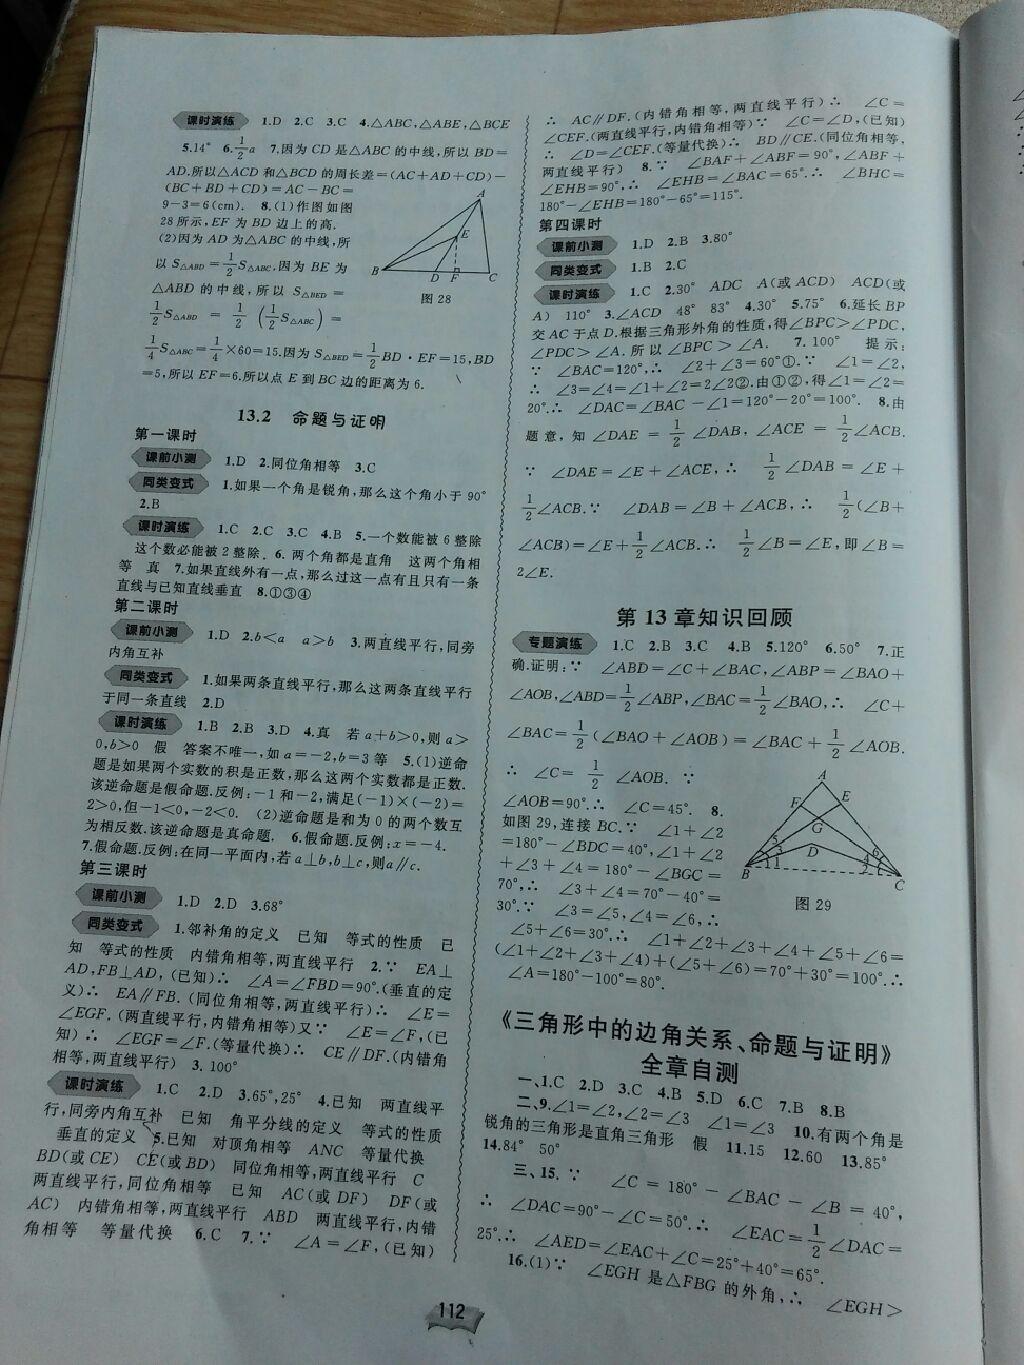 课时演练 1.D 2.C 3.C 4.△ABC,△ABE,△BCE
5.14° 6.1/2a 7.因为CD是△ABC的中线,所以BD=
AD.所以△ACD和△BCD的周长差=(AC+AD+CD)-
(BC+BD+CD)=AC-BC=
9-3=6(cm). 8.(1)作图如图
28所示,EF为BD边上的高.
(2)因为AD为△ABC的中线,所
以S△ABD=1/2S△ABC,因为BE为
△ABD的中线,所以S△BED=
1/2S△ABD=1/2(1/2S△ABC)=
A
E
B D F C
图28
1/4S△ABC=1/4×60=15.因为S△BED=1/2BD·EF=15,BD
=5,所以EF=6.所以点E到BC边的距离为6.
13.2 命题与证明
第一课时
课前小测 1.D 2.同位角相等 3.C
同类变式 1.如果一个角是锐角,那么这个角小于90°
2.B
课时演练 1.C 2.C 3.C 4.B 5.一个数能被6整除
这个数必能被2整除. 6.两个角都是直角 这两个角相
等 真 7.如果直线外有一点,那么过这一点有且只有一条
直线与已知直线垂直 8.①③④
第二课时
课前小测 1.D 2.b<a a>b 3.两直线平行,同旁
内角互补
同类变式 1.如果两条直线平行,那么这两条直线平行
于同一条直线 2.D
课时演练 1.B 2.B 3.D 4.真 若a+b>0,则a>
0,b>0 假 答案不唯一,如a=-2,b=3等 5.(1)逆命
题是如果两个实数的积是正数,那么这两个实数都是正数.
该逆命题是假命题.反例:-1和-2,满足(-1)×(-2)=
2>0,但-1<0,-2<0. (2)逆命题是和为0的两个数互
为相反数.该逆命题是真命题. 6.假命题.反例:x=-4.
7.假命题.反例:在同一平面内,若a⊥b,b⊥c,则a∥c.
第三课时
课前小测 1.D 2.D 3.68°
同类变式 1.邻补角的定义 已知 等式的性质 已
知 等式的性质 内错角相等,两直线平行 2.∵ EA⊥
AD,FB⊥AD,(已知)∴ ∠A=∠FBD=90°.(垂直的定
义)∴ EA∥FB.(同位角相等,两直线平行)∴ ∠E=
∠EGF.(两直线平行,内错角相等)又∵ ∠E=∠F,(已
知)∴ ∠EGF=∠F.(等量代换)∴ CE∥DF.(内错角
相等,两直线平行) 3.100°
课时演练 1.C 2.D 3.65°,25° 4.已知 两直线平
行,同旁内角互补 已知 角平分线的定义 等式的性质
垂直的定义 5.已知 对顶角相等 ANC 等量代换
BD(或CE) CE(或BD) 同位角相等,两直线平行 C
两直线平行,同位角相等 已知 AC(或DF) DF(或
AC) 内错角相等,两直线平行 ABD 两直线平行,内错
角相等 等量代换 6.C 7.∵ ∠A=∠F,(已知)
∴ AC∥DF.(内错角相等,两直线平行)∴ ∠C=
∠CEF.(两直线平行,内错角相等)∵ ∠C=∠D,(已知)
∴ ∠D=∠CEF.(等量代换)∴ BD∥CE.(同位角相等,
两直线平行) 8.∵ ∠BAF+∠ABF=90°,∠ABF+
∠EHB=90°,∴ ∠EHB=∠BAC=65°.∴ ∠BHC=
180°-∠EHB=180°-65°=115°.
第四课时
课前小测 1.D 2.B 3.80°
同类变式 1.B 2.C
课时演练 1.C 2.30° ADC A(或ACD) ACD(或
A) 110° 3.∠ACD 48° 83° 4.30° 5.75° 6.延长BP
交AC于点D.根据三角形外角的性质,得∠BPC>∠PDC,
∠PDC>∠A.所以∠BPC>∠A. 7.100° 提示:
∵ ∠BAC=120°,∴ ∠2+∠3=60°①.∵ ∠1=∠2,
∴ ∠3=∠4=∠1+∠2=2∠2②.由①②,得∠1=∠2=
20°.∴ ∠DAC=∠BAC-∠1=120°-20°=100°. 8.由
题意,知∠DAE=1/2∠DAB,∠ACE=1/2∠ACB.
∵ ∠DAE=∠E+∠ACE,∴ 1/2∠DAB=∠E+
1/2∠ACB.∵ ∠DAB=∠B+∠ACB,∴ 1/2(∠B+
∠ACB)=∠E+1/2∠ACB.∴ 1/2∠B=∠E,即∠B=
2∠E.
第13章知识回顾
专题演练 1.C 2.B 3.C 4.B 5.120° 6.50° 7.正
确.证明:∵ ∠ABD=∠C+∠BAC,∠ABP=∠BAO+
∠AOB,∠ABD=1/2∠ABP,∠BAC=1/2∠BAO,∴ ∠C+
∠BAC=1/2(∠BAO+∠AOB)=∠BAC+1/2∠AOB.
∴ ∠C=1/2∠AOB. ∵
∠AOB=90°.∴ ∠C=45°. 8.
如图29,连接BC.∵ ∠1+∠2
=180°-∠BDC=40°,∠1+∠2
+∠3+∠4=180°-∠BGC=
70°,∴ ∠3+∠4=70°-40°=
30°.∵ ∠3=∠5,∠4=∠6,∴
A
F E
G
D
5 3 1 6 4 2
B C
图29
∠5+∠6=30°.∴ ∠1+∠2+∠3+∠4+∠5+∠6=
(∠1+∠2+∠3+∠4)+(∠5+∠6)=70°+30°=100°.∴
∠A=180°-100°=80°.
《三角形中的边角关系、命题与证明》
全章自测
一、1.C 2.D 3.C 4.B 5.D 6.C 7.B 8.B
二、9.∠1=∠2,∠2=∠3 ∠1=∠3 10.有两个角是
锐角的三角形是直角三角形 假 11.15 12.60 13.85°
14.84° 50°
三、15.∵ ∠C=180°-∠BAC-∠B=40°,
∴ ∠DAC=90°-∠C=50°.∴ ∠EAC=1/2∠DAC=
25°.∴ ∠AED=∠EAC+∠C=25°+40°=65°.
16.(1)∵ ∠EGH是△FBG的外角,∴ ∠EGH>
112